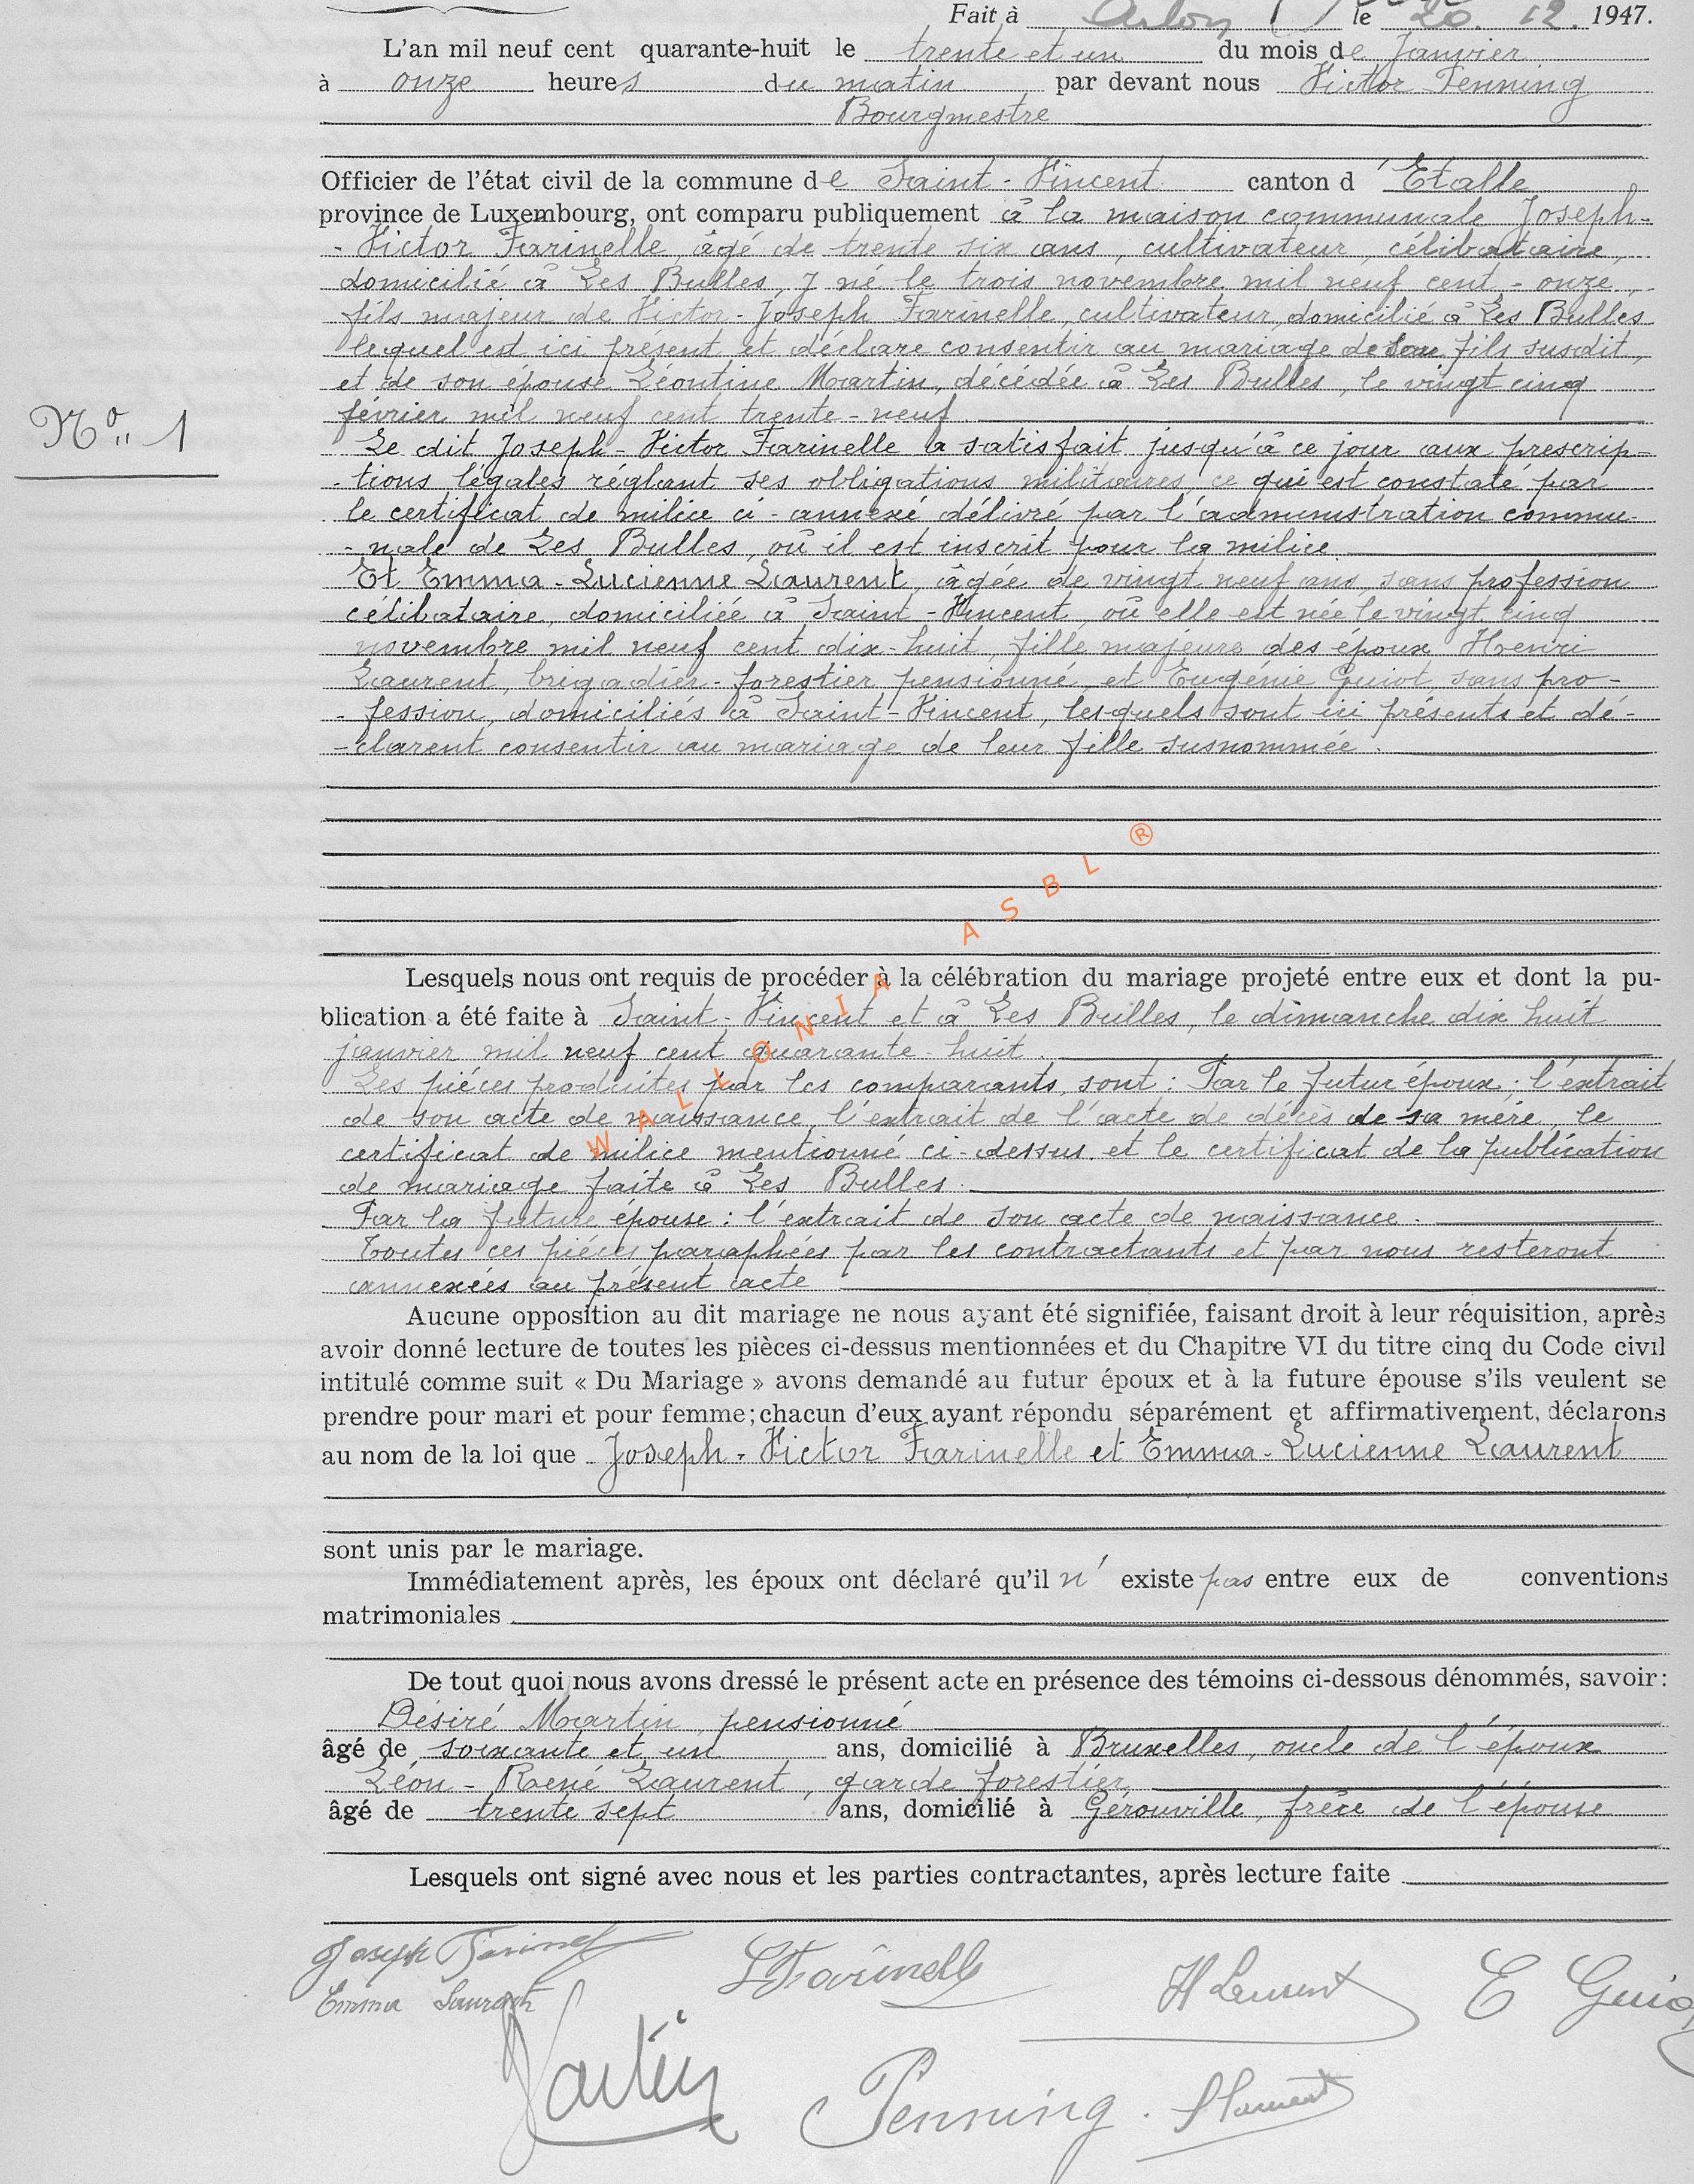 Fait à Arlon le 20. 12. 1947.
L'an mil neuf cent quarante-huit le trente et un du mois de Janvier
à onze heures du matin par devant nous Victor Penning
Bourgmestre
Officier de l'état civil de la commune de Saint-Vincent canton d'Etalle
province de Luxembourg, ont comparu publiquement à la maison communale Joseph-
-Victor Farinelle, âgé de trente six ans, cultivateur, célibataire,
domicilié à Les Bulles, y né le trois novembre mil neuf cent-onze,
fils majeur de Victor-Joseph Farinelle, cultivateur, domicilié à Les Bulles
lequel est ici présent et déclare consentir au mariage de son fils susdit,
et de son épouse Léontine Martin, décédée à Les Bulles, le vingt cinq
février mil neuf cent trente-neuf.
No 1
Le dit Joseph-Victor Farinelle a satisfait jusqu'à ce jour aux prescrip-
-tions légales réglant ses obligations militaires, ce qui est constaté par
le certificat de milice ci-annexé délivré par l'administration commu-
-nale de Les Bulles, où il est inscrit pour la milice.
Et Emma-Lucienne Laurent, âgée de vingt neuf ans, sans profession
célibataire, domiciliée à Saint-Vincent, où elle est née le vingt cinq
novembre mil neuf cent dix-huit, fille majeure des époux Henri
Laurent, brigadier-forestier pensionné et Eugénie Guiot sans pro-
-fession, domiciliés à Saint-Vincent, lesquels sont ici présents et dé-
-clarent consentir au mariage de leur fille susnommée.
Lesquels nous ont requis de procéder à la célébration du mariage projeté entre eux et dont la pu-
blication a été faite à Saint-Vincent et à Les Bulles, le dimanche dix huit
janvier mil neuf cent quarante-huit.
Les pièces produites par les comparants, sont: Par le futur époux: l'extrait
de son acte de naissance, l'extrait de l'acte de décès de sa mère, le
certificat de milice mentionné ci-dessus et le certificat de la publication
de mariage faite à Les Bulles.
Par la future épouse: l'extrait de son acte de naissance.
Toutes ces pièces paraphées par les contractants et par nous resteront
annexées au présent acte
WALLONIA ASBL ®
Aucune opposition au dit mariage ne nous ayant été signifiée, faisant droit à leur réquisition, après
avoir donné lecture de toutes les pièces ci-dessus mentionnées et du Chapitre VI du titre cinq du Code civil
intitulé comme suit « Du Mariage » avons demandé au futur époux et à la future épouse s'ils veulent se
prendre pour mari et pour femme; chacun d'eux ayant répondu séparément et affirmativement, déclarons
au nom de la loi que Joseph-Victor Farinelle et Emma-Lucienne Laurent
sont unis par le mariage.
Immédiatement après, les époux ont déclaré qu'il n'existe pas entre eux de conventions
matrimoniales
De tout quoi nous avons dressé le présent acte en présence des témoins ci-dessous dénommés, savoir:
Désiré Martin, pensionné
âgé de soixante et un ans, domicilié à Bruxelles, oncle de l'époux
Léon-René Laurent, garde forestier
âgé de trente sept ans, domicilié à Gérouville, frère de l'épouse
Lesquels ont signé avec nous et les parties contractantes, après lecture faite
Joseph Farinelle
Farinelle
H Laurent
E Guiot
Emma Laurent
Martin
Penning.
Laurent